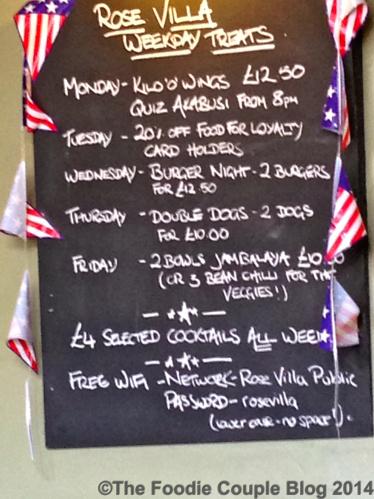 ROSE VILLA
WEEKDAY TREATS.
MONDAY - KILO 'O' WINGS £12.50
QUIZ AKABUSI FROM 8PM
TUESDAY - 20% OFF FOOD FOR LOYALTY
CARD HOLDERS
WEDNESDAY - BURGER NIGHT - 2 BURGERS
FOR £12.50
THURSDAY - DOUBLE DOGS - 2 DOGS
FOR £10.00
FRIDAY - 2 BOWLS JAMBALAYA
(OR 3 BEAN CHILLI FOR THE
VEGGIES!)
£4 SELECTED COCKTAILS ALL WEEK
FREE WIFI - NETWORK - ROSE VILLA PUBLIC
PASSWORD - rosevilla
(lower case - no space!).
©The Foodie Couple Blog 2014